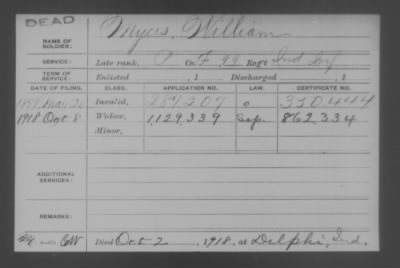 DEAD
NAME OF SOLDIER: Myers, William
SERVICE: Late rank, P Co. F, 99 Reg't Ind Inf
TERM OF SERVICE: Enlisted , 1 Discharged , 1
DATE OF FILING. CLASS. APPLICATION NO. LAW. CERTIFICATE NO.
1879 Mar 20 Invalid, 287207 o 330444
1918 Oct 8 Widow, 1,129,339 862,334
Minor,
ADDITIONAL SERVICES:
REMARKS:
Died Oct 2, 1918, at Delphi, Ind.